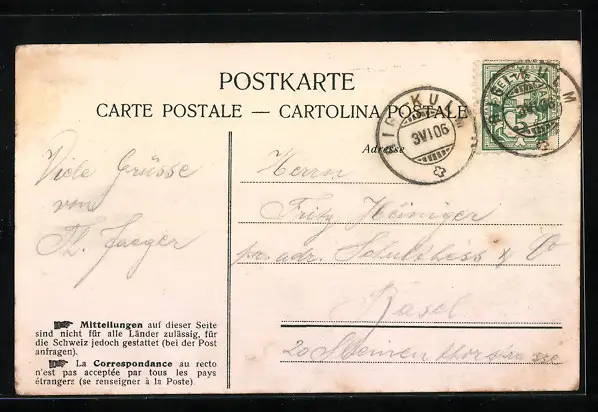 POSTKARTE
CARTE POSTALE — CARTOLINA POSTALE
RIGI-KULM
3VI06
RIGI-KULM
3VI06
Adresse
Viele Grüsse
von
Jaeger
Herrn
Fritz Heiniger
pr. adr. Schulthess & Co
Basel
20 Steinenthorstrasse
Mitteilungen auf dieser Seite
sind nicht für alle Länder zulässig, für
die Schweiz jedoch gestattet (bei der Post
anfragen).
La Correspondance au recto
n'est pas acceptée par tous les pays
étrangers (se renseigner à la Poste).